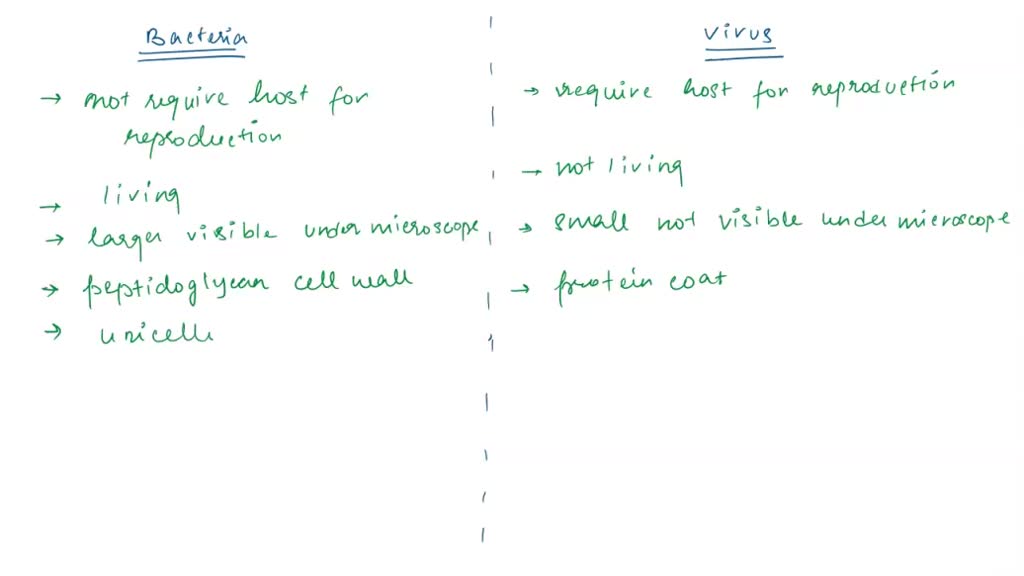 Bacteria
→ not require host for
reproduction
→ living
→ larger visible under microscope
→ peptidoglycan cell wall
→ unicell
virus
→ require host for reproduction
→ not living
→ small not visible under microscope
→ protein coat